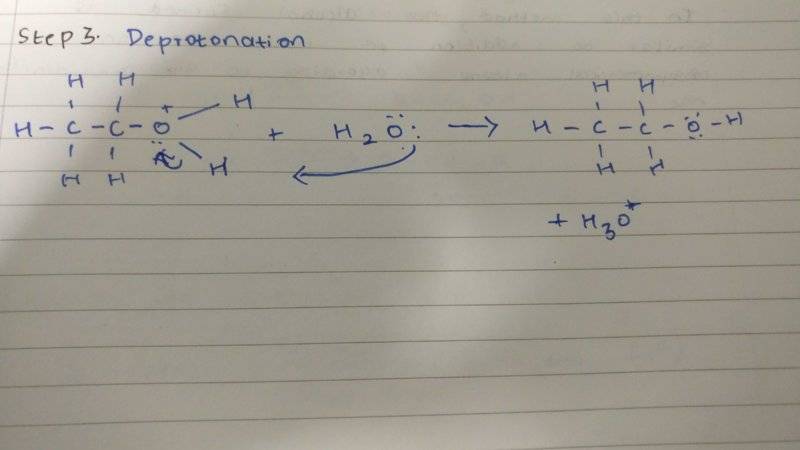 Step 3. Deprotonation
H H
H - C - C - O + H
H H H
+ H2O: →
H H
H - C - C - O - H
H H
+ H3O+